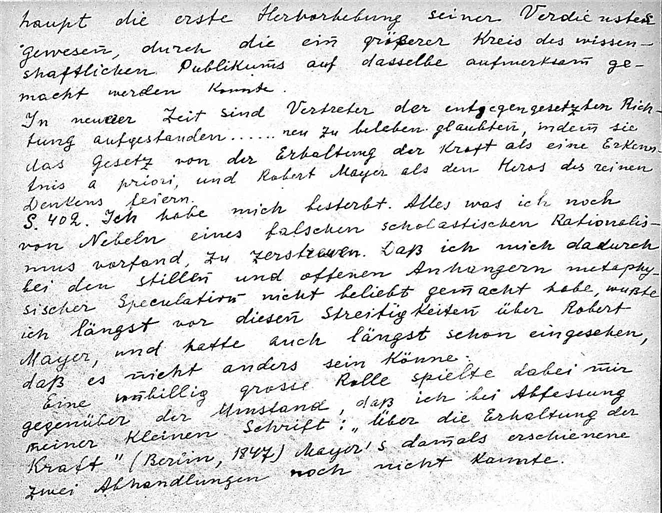 haupt die erste Hervorhebung seiner Verdienste
gewesen, durch die ein größerer Kreis des wissen-
shaftlichen Publikums auf dasselbe aufmerksam ge-
macht werden konnte.
In neuer Zeit sind Vertreter der entgegengesetzten Rich-
tung aufgestanden...... neu zu beleben glaubten, indem sie
das Gesetz von der Erhaltung der Kraft als eine Erkenn-
tnis a priori, und Robert Mayer als den Heros des reinen
Denkens feiern.
S. 402. Ich habe mich bestrebt. Alles was ich noch
von Nebeln eines falschen scholastischen Rationalis-
mus vorfand, zu zerstreuen. Daß ich mich dadurch
bei den stillen und offenen Anhangern metaphy-
sischer Speculation nicht beliebt gemacht habe, wußte
ich längst vor diesen Streitigkeiten über Robert
Mayer, und hatte auch längst schon eingesehen,
daß es nicht anders sein könne.
Eine unbillig grosse Rolle spielte dabei mir
gegenüber der Umstand, daß ich bei Abfassung
meiner kleinen Schrift: „Über die Erhaltung der
Kraft" (Berlin, 1847) Mayer's damals erschienene
zwei Abhandlungen noch nicht kannte.